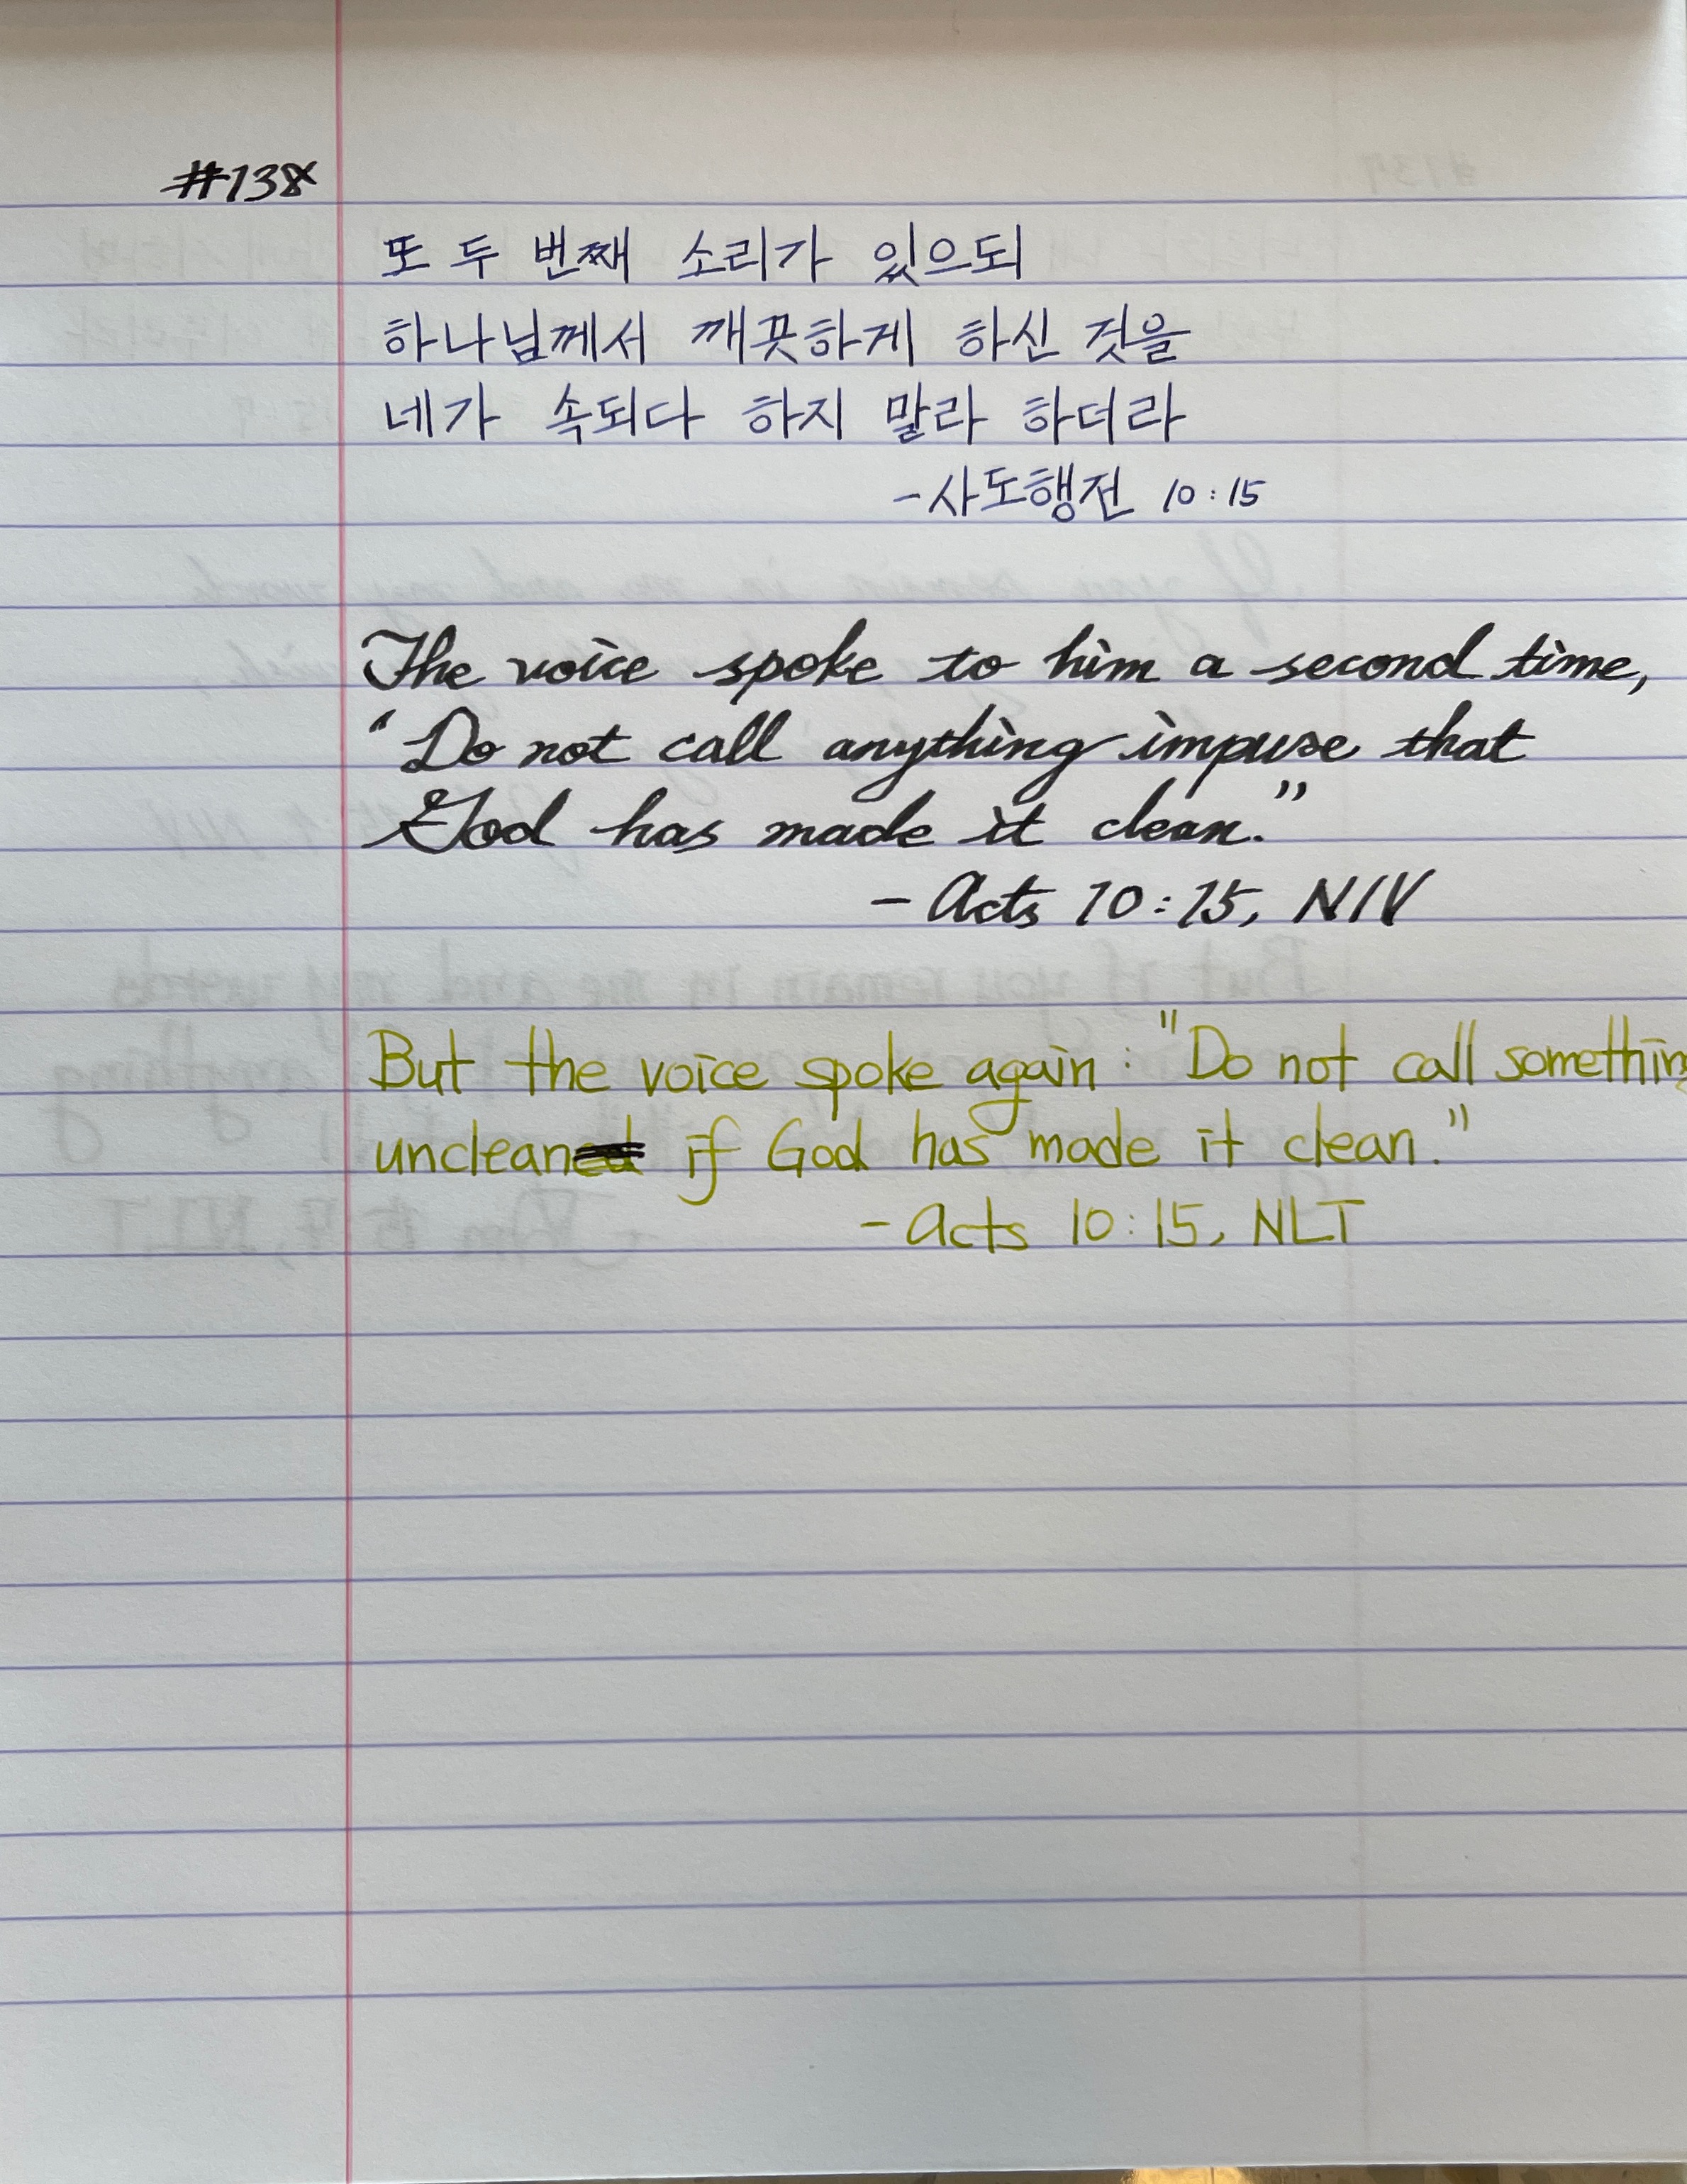 #138
또 두 번째 소리가 있으되
하나님께서 깨끗하게 하신 것을
네가 속되다 하지 말라 하더라
-사도행전 10:15
The voice spoke to him a second time,
"Do not call anything impure that
God has made it clean."
- Acts 10:15, NIV
But the voice spoke again: "Do not call somethin
unclean if God has made it clean."
- Acts 10:15, NLT